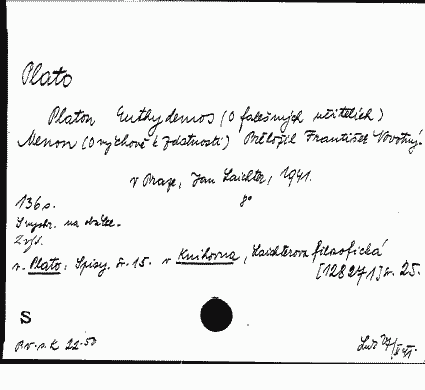 Plato
Platon Euthydemos (O falešných učitelích)
Menon (O výchově k zdatnosti) Přeložil František Novotný.
v Praze, Jan Laichter, 1941.
136 s. 8°
S vyobr. na obálce.
v. Plato: Spisy. č. 15. v Knihovna, Laichterova filosofická
[128271] č. 25.
S
22.50